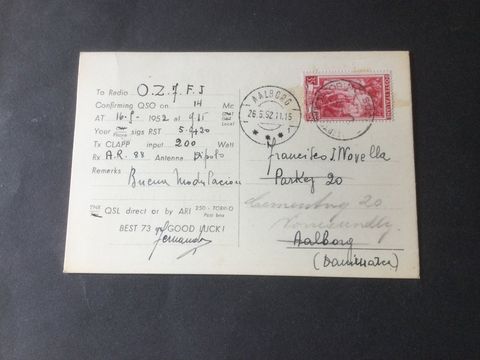 To Radio O.Z.7.F.J
Confirming QSO on 14 Mc
AT 16-5- 1952 at 911 GMT Local
Your sigs RST 5.9+20
Tx CLAPP input 200 Watt
Rx A.R. 88 Antenna Dipolo
Remarks Buena Modulacion
QSL direct or by ARI 250 - TORINO
Post box
BEST 73 GOOD LUCK!
Fernando
AALBORG
26.5.52.11.15
POSTE ITALIANE
Francisco I
Parkej 20
Cementvej 20
Aalborg
(Danimarca)